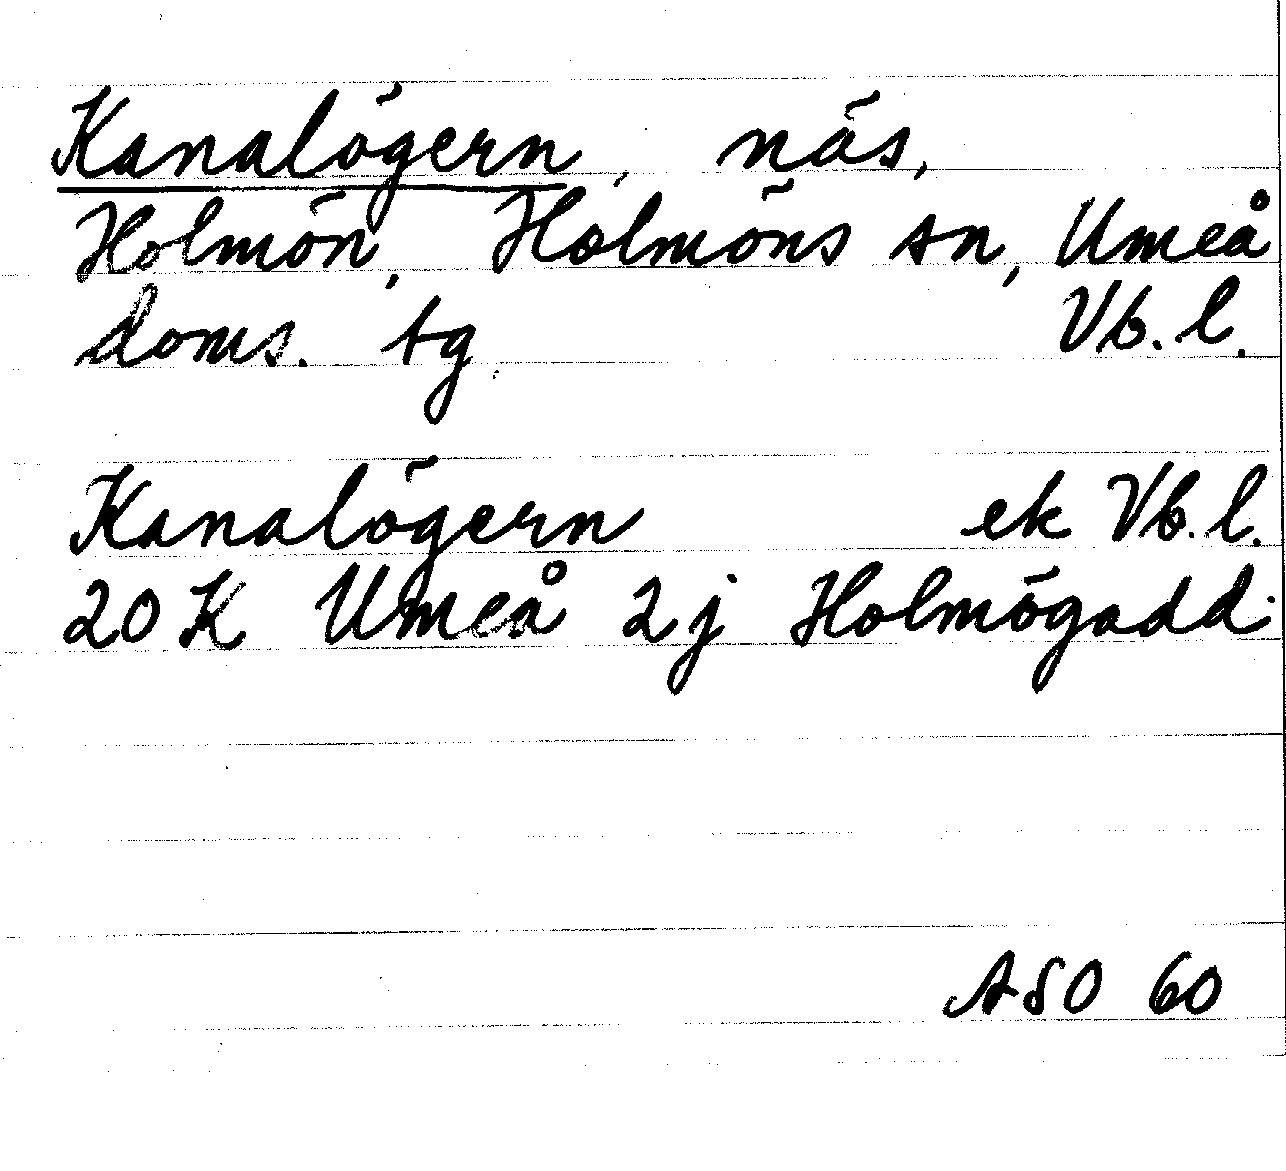 Kanalögern, näs,
Holmön, Holmöns sn, Umeå
doms. tg Vb. l.
Kanalögern ek Vb. l.
20 K Umeå 2j Holmögadd.
ASO 60